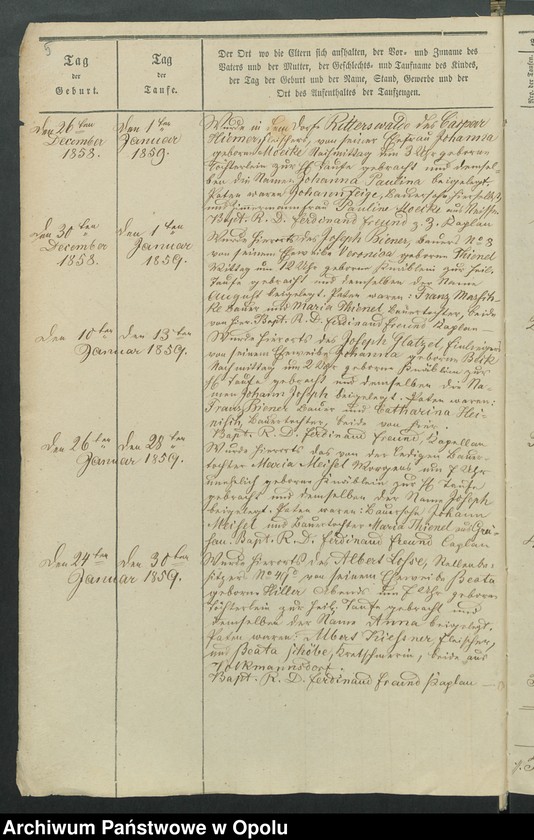 5
Tag
der
Geburt.
Tag
der
Taufe.
Der Ort wo die Eltern sich aufhalten, der Vor- und Zuname des
Vaters und der Mutter, der Geschlechts- und Taufname des Kindes,
der Tag der Geburt und der Name, Stand, Gewerbe und der
Ort des Aufenthaltes der Taufzeugen.
Den 26ten
December
1858.
Den 1ten
Januar
1859.
Wurde in dem Dorfe Ritterswalde des Caspar
von seiner Ehefrau Johanna
geborne Moecke Nachmittag um 3 Uhr geborne
Töchterlein zur H. Taufe gebracht und demsel-
ben die Namen Johanna Paulina beigelegt.
Paten waren Johann Feige,
Pauline Moecke aus Neisse.
Bapt. R. D. Ferdinand Freund z. Z. Kaplan
Den 30ten
December
1858.
Den 1ten
Januar
1859.
Wurde hierorts des Joseph Biener, Bauers No 8
von seinem Eheweibe Veronica geborne Thienel
Mittag um 12 Uhr geborne Knäblein zur Heil.
Taufe gebracht und demselben der Name
August beigelegt. Paten waren: Franz
Bauer und Maria Thienel Bauertochter, beide
von hier. Bapt. R. D. Ferdinand Freund Kaplan
Den 10ten
Januar
Den 13ten
1859.
Wurde hierorts des Joseph Glatzel,
von seinem Eheweibe Johanna geborne
Nachmittag um 2 Uhr geborne Knäblein zur
H. Taufe gebracht und demselben die Na-
men Johann Joseph beigelegt. Paten waren:
Franz Biener Bauer und Catharina Hei-
nisch, Bauertochter, beide von hier.
Bapt. R. D. Ferdinand Freund, Capellan
Den 26ten
Januar
Den 28ten
1859.
Wurde hierorts das von der ledigen Bauer-
tochter Maria Meisel Morgens um 7 Uhr
unehelich geborne Knäblein zur H. Taufe
gebracht und demselben der Name Joseph
beigelegt. Paten waren: Bauersohn Johann
Meisel und Bauertochter Maria Thienel aus
Bapt. R. D. Ferdinand Freund Caplan
Den 24ten
Januar
Den 30ten
1859.
Wurde hierorts des Albert Lohse, Stellenbe-
sitzers No 49 von seinem Eheweibe Beata
geborne Hiller Abends um 7 Uhr geborne
Töchterlein zur Heil. Taufe gebracht und
demselben der Name Anna beigelegt.
Paten waren: Albert Kiessner Fleischer,
und Beata Schöbe, Kretschmerin, beide aus
Volkmannsdorf.
Bapt. R. D. Ferdinand Freund Kaplan
Archiwum Państwowe w Opolu